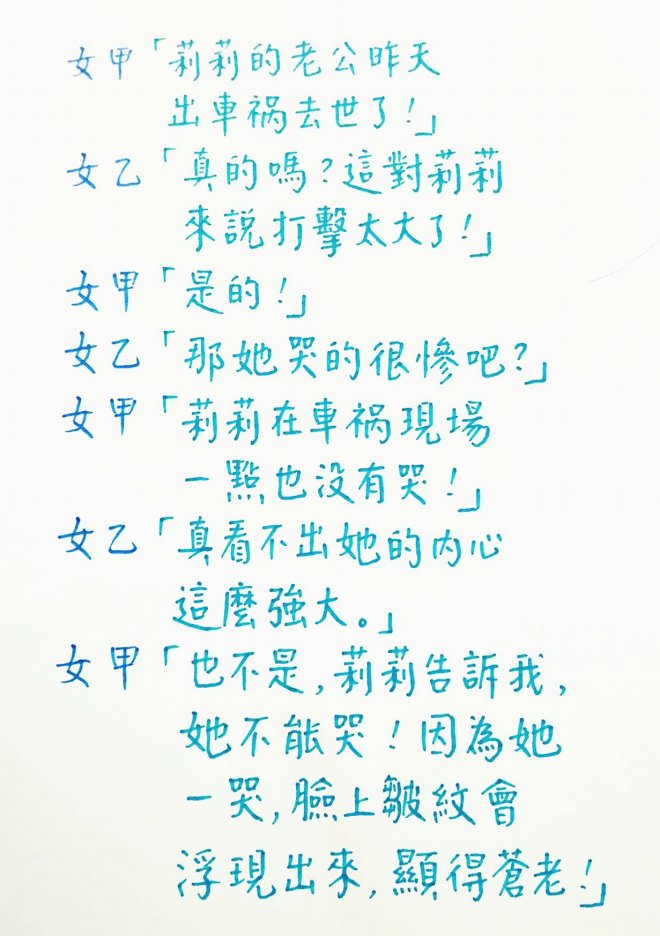 女甲「莉莉的老公昨天
出車禍去世了!」
女乙「真的嗎?這對莉莉
來說打擊太大了!」
女甲「是的!」
女乙「那她哭的很慘吧?」
女甲「莉莉在車禍現場
一點也没有哭!」
女乙「真看不出她的内心
這麼強大。」
女甲「也不是,莉莉告訴我,
她不能哭!因為她
一哭,臉上皺紋會
浮現出來,顯得蒼老!」